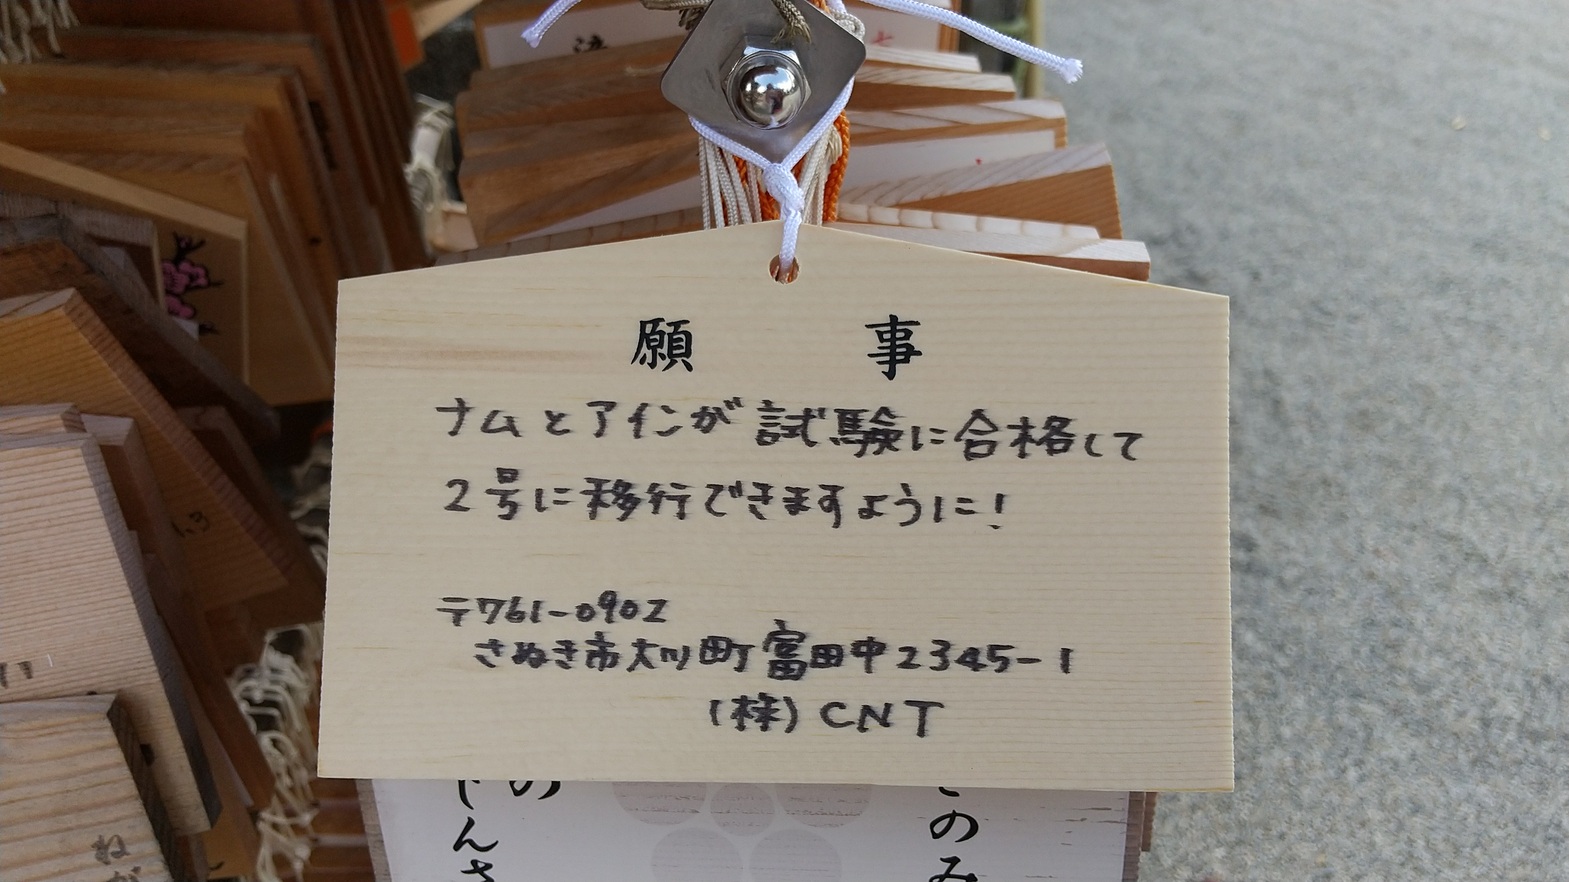 願事
ナムとアインが試験に合格して
2号に移行できますように!
〒761-0902
さぬき市大川町富田中2345-1
(株)CNT